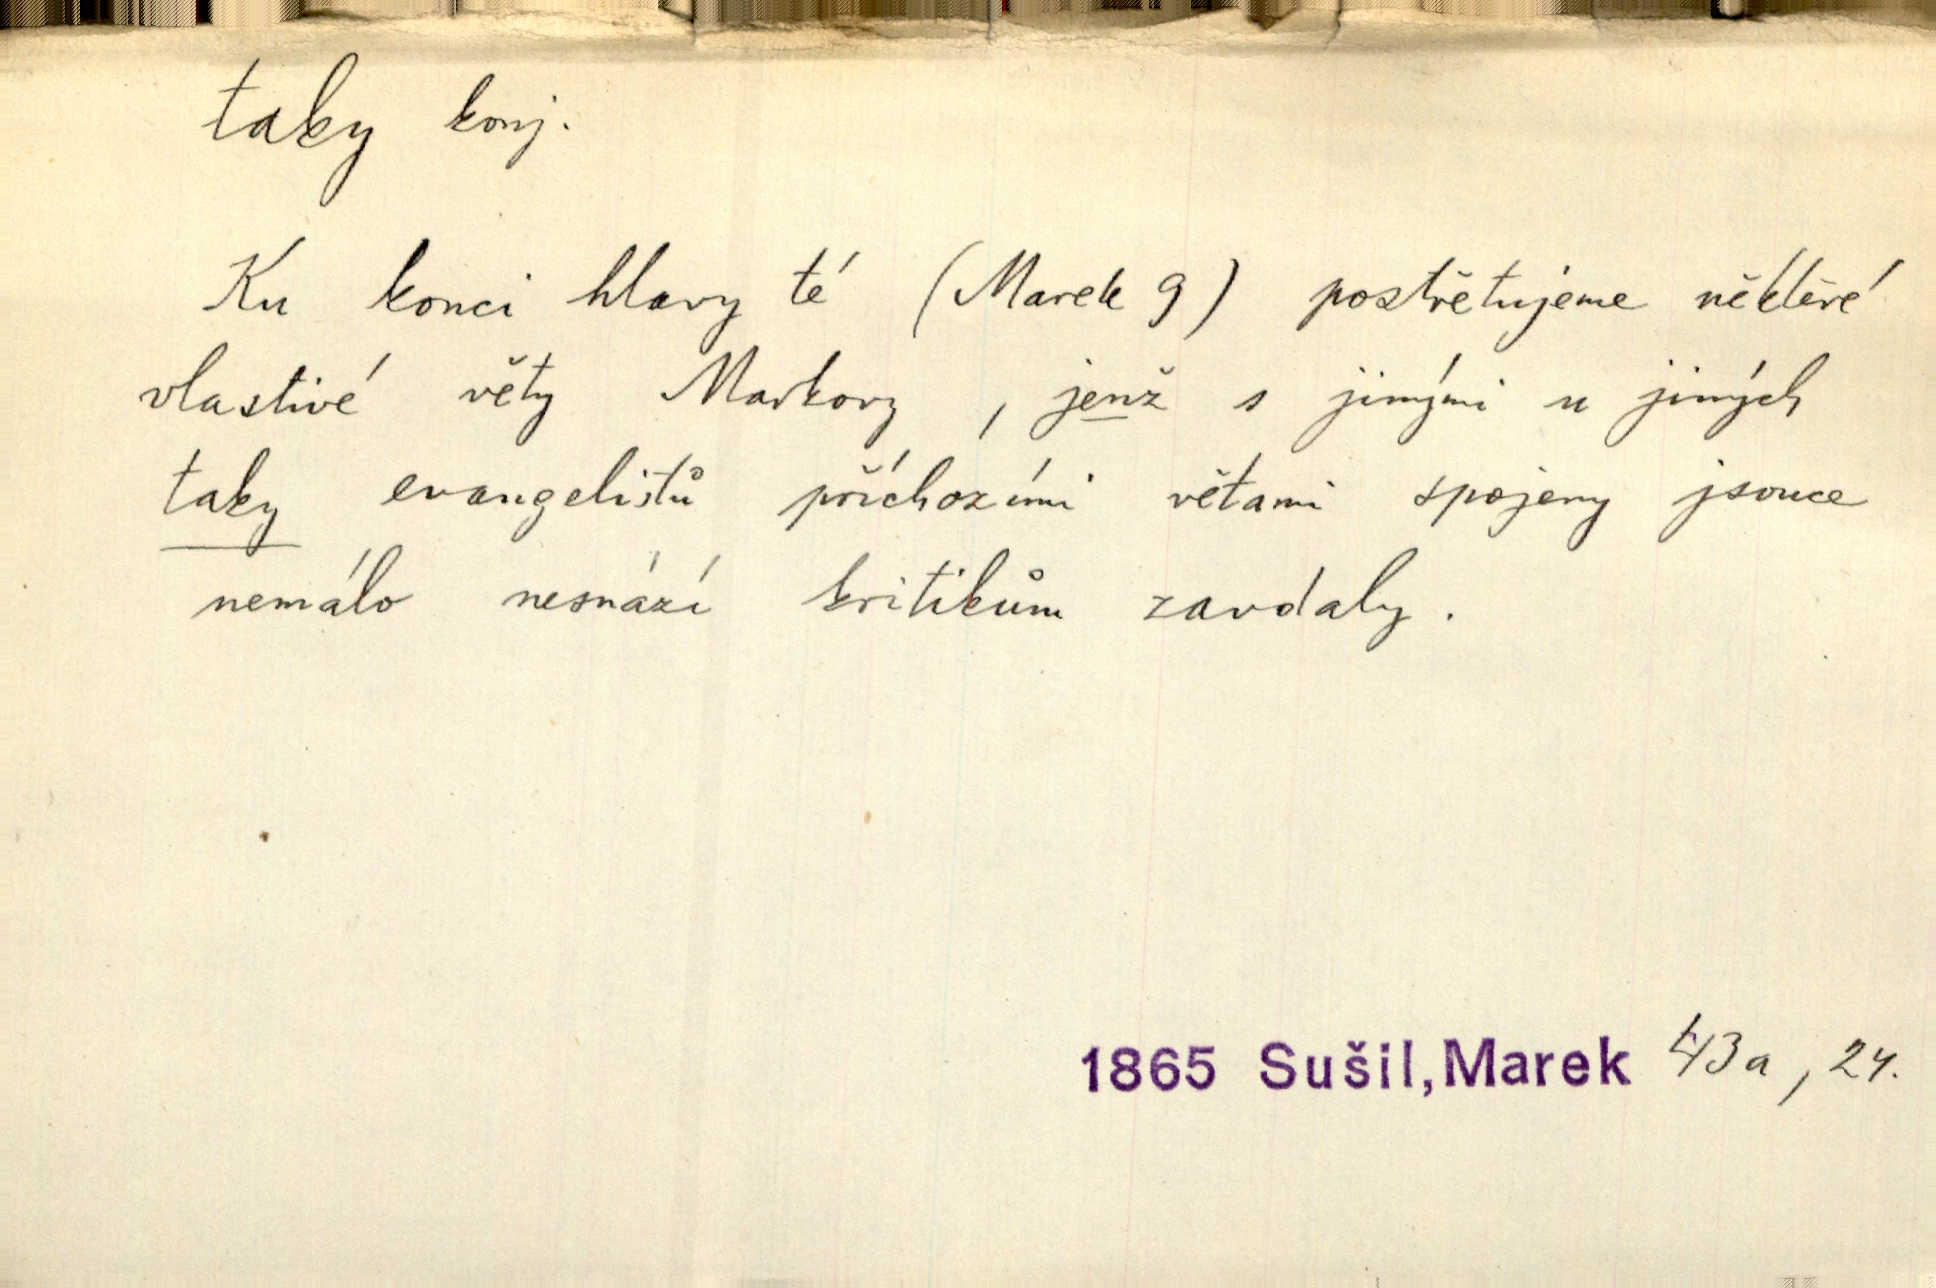 taky konj.
Ku konci hlavy té (Marek 9) postřetujeme některé
vlastivé věty Markovy, jenž s jinými u jiných
taky evangelistů příchozími větami spojeny jsouce
nemálo nesnází kritikům zavdaly.
1865 Sušil, Marek 43a, 24.